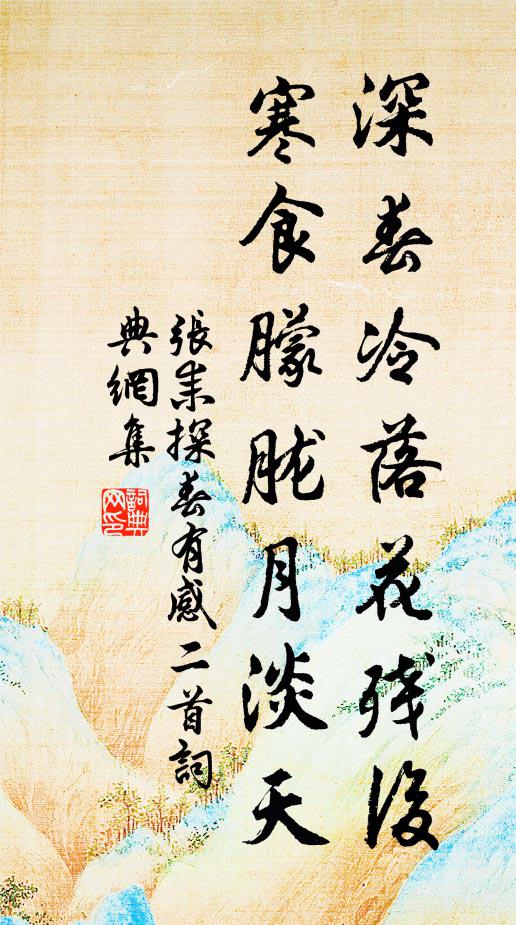 深春冷落花残後
寒食朦朧月淡天
張耒探春有感二首詞
典網集
詞典
网印